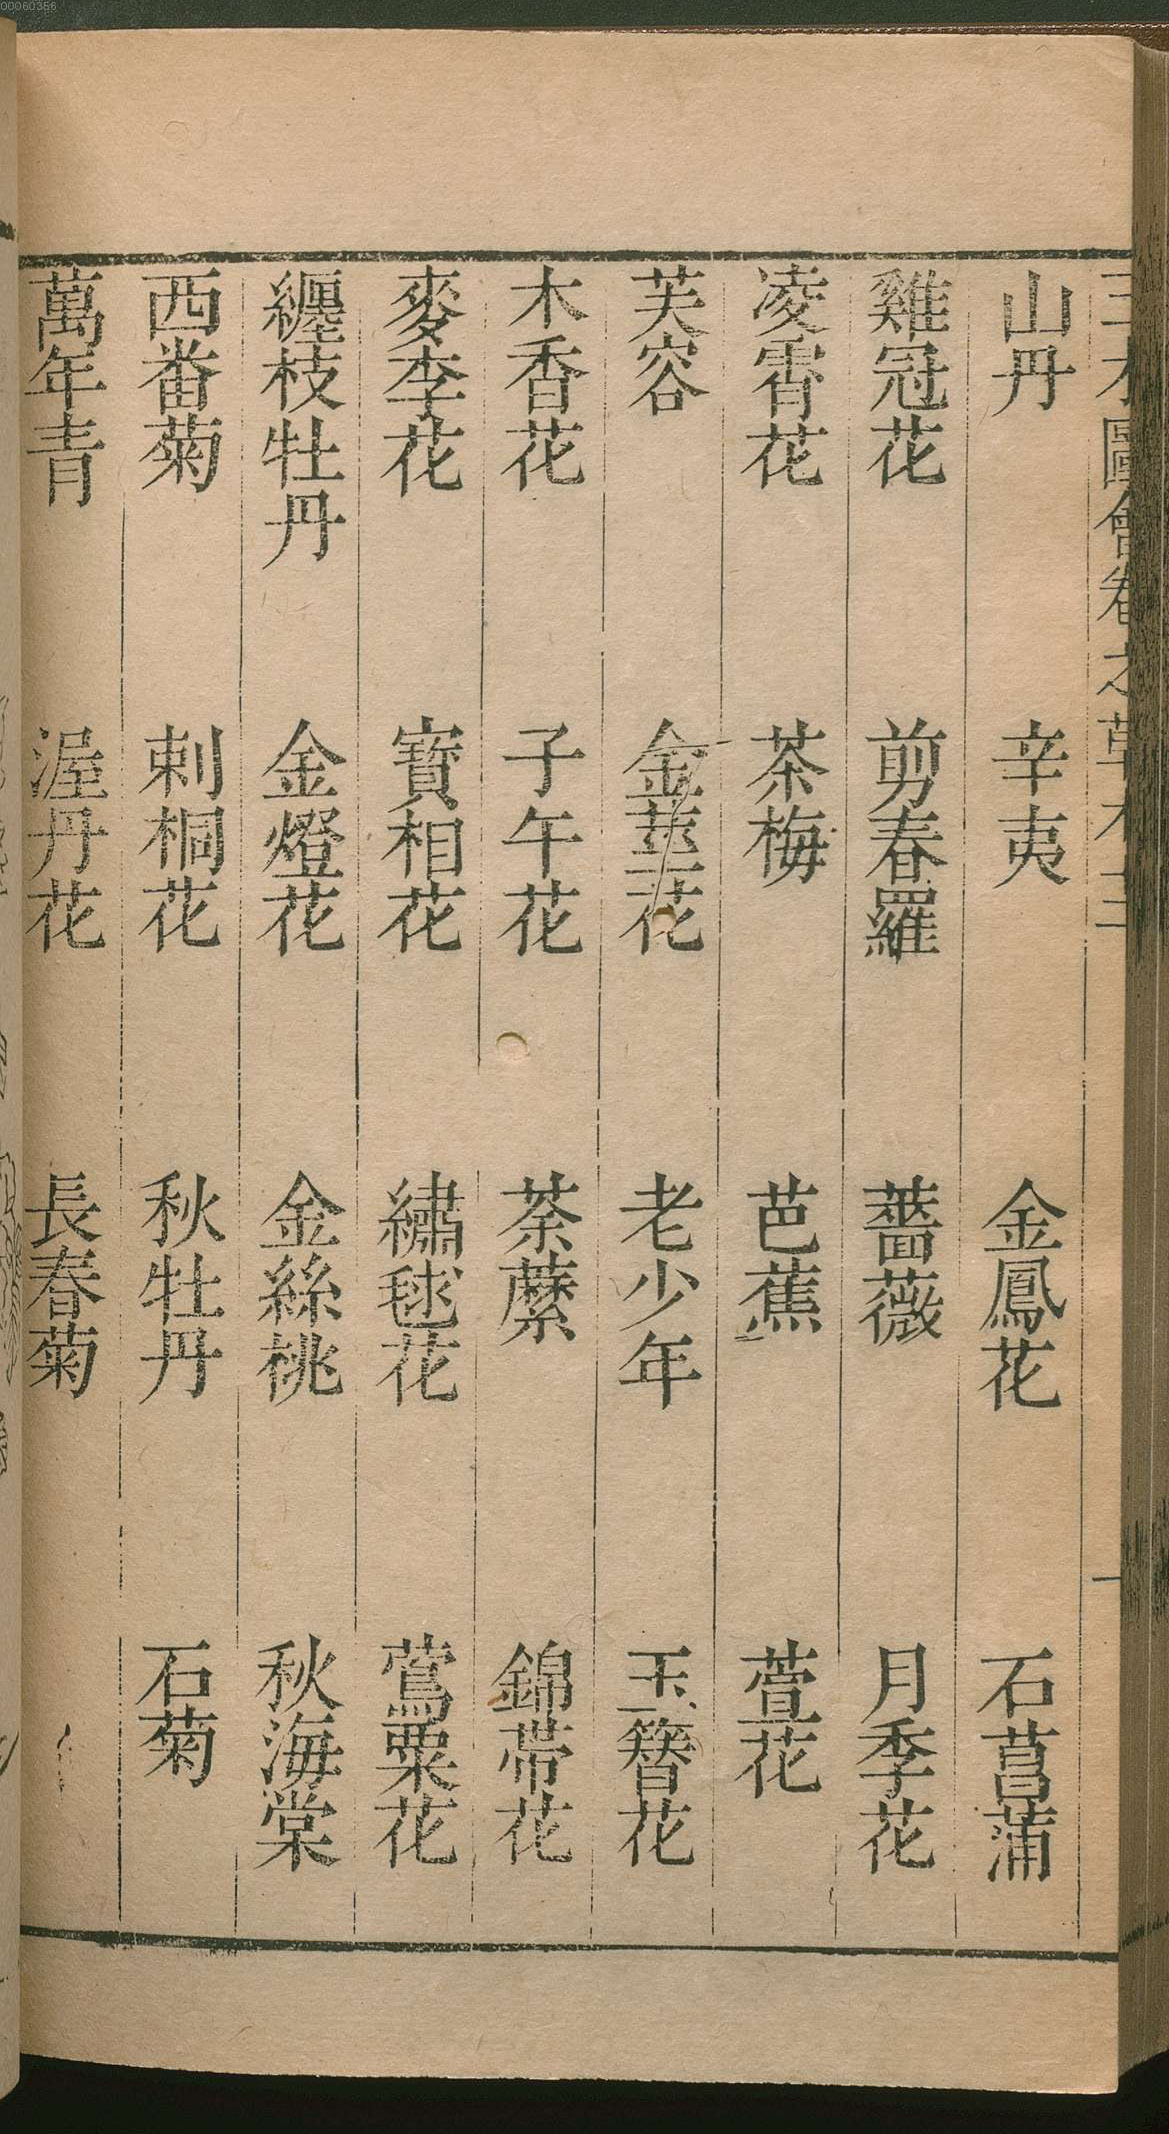 山丹 辛夷 金鳳花 石菖蒲
雞冠花 剪春羅 薔薇 月季花
凌霄花 茶梅 芭蕉 萱花
芙容 金莖花 老少年 玉簪花
木香花 子午花 荼蘼 錦帯花
麥李花 寶相花 繡毬花 鶯粟花
纏枝牡丹 金燈花 金絲桃 秋海棠
西番菊 刺桐花 秋牡丹 石菊
萬年青 渥丹花 長春菊
圖會卷之草木
00060386